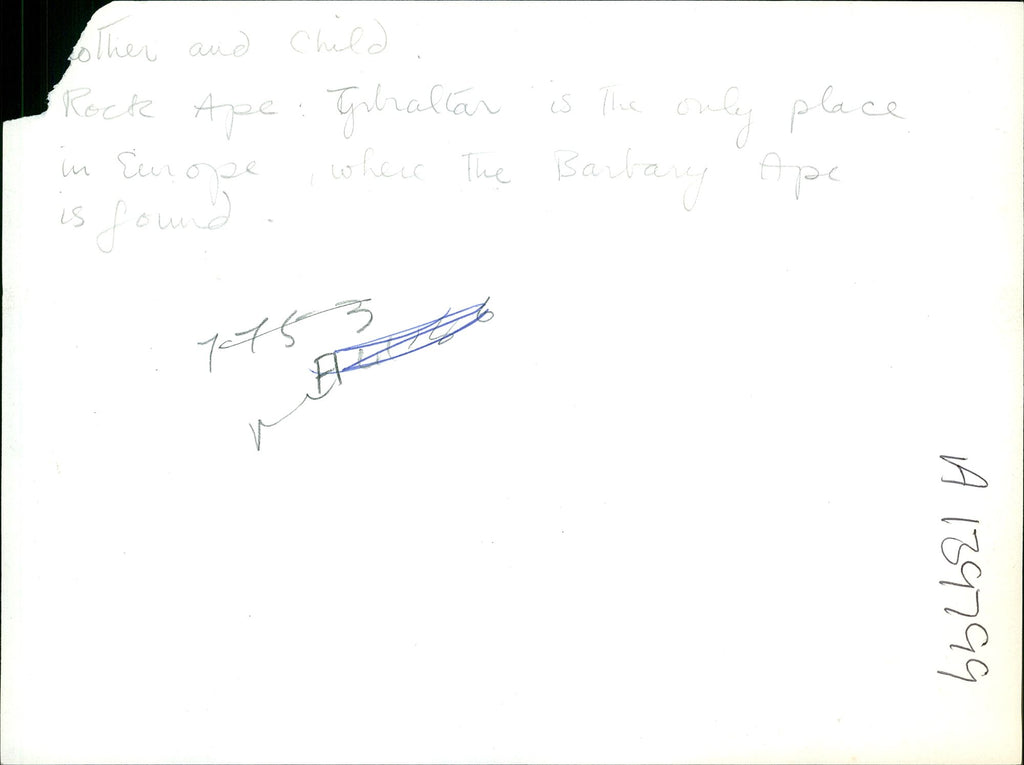 other and Child.
Rock Ape : Gibraltar is the only place
in Europe, where the Barbary Ape
is found.
A139799